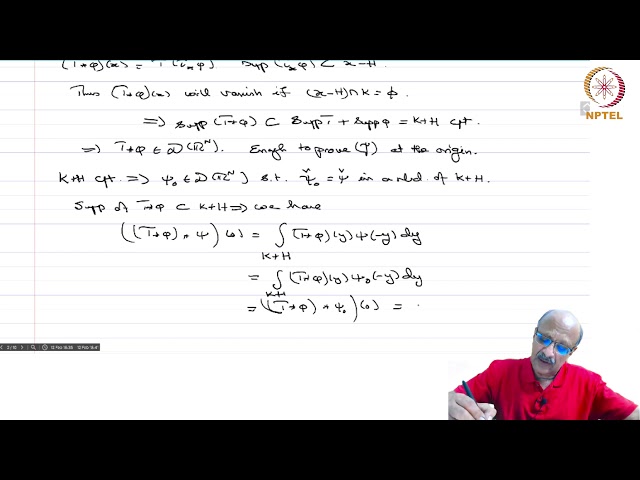 (T*φ)(x) = T(τₓφ̌) supp(τₓφ̌) ⊂ x-H.
Thus (T*φ)(x) will vanish if (x-H)∩K = ϕ.
⇒ supp(T*φ) ⊂ supp T + supp φ = K+H cpt.
⇒ T*φ ∈ 𝒟(ℝᴺ). Enough to prove (Ψ) at the origin.
K+H cpt. ⇒ ψ₀ ∈ 𝒟(ℝᴺ) s.t. ψ̌₀ = ψ̌ in a nbd. of K+H.
Supp of T*φ ⊂ K+H ⇒ we have
((T*φ)*ψ)(0) = ∫ (T*φ)(y) ψ(-y) dy
K+H
= ∫ (T*φ)(y) ψ₀(-y) dy
K+H
= ((T*φ)*ψ₀)(0) =
NPTEL